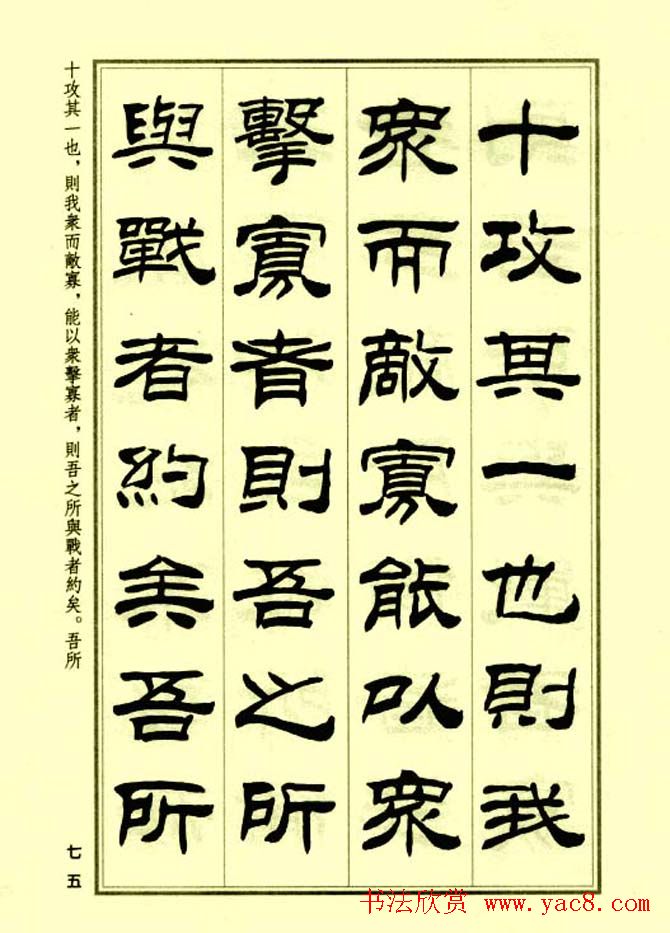 十攻其一也則我
衆而敵寡能以衆
擊寡者則吾之所
與戰者約矣吾所
十攻其一也，則我衆而敵寡，能以衆擊寡者，則吾之所與戰者約矣。吾所
七五
书法欣赏 www.yac8.com